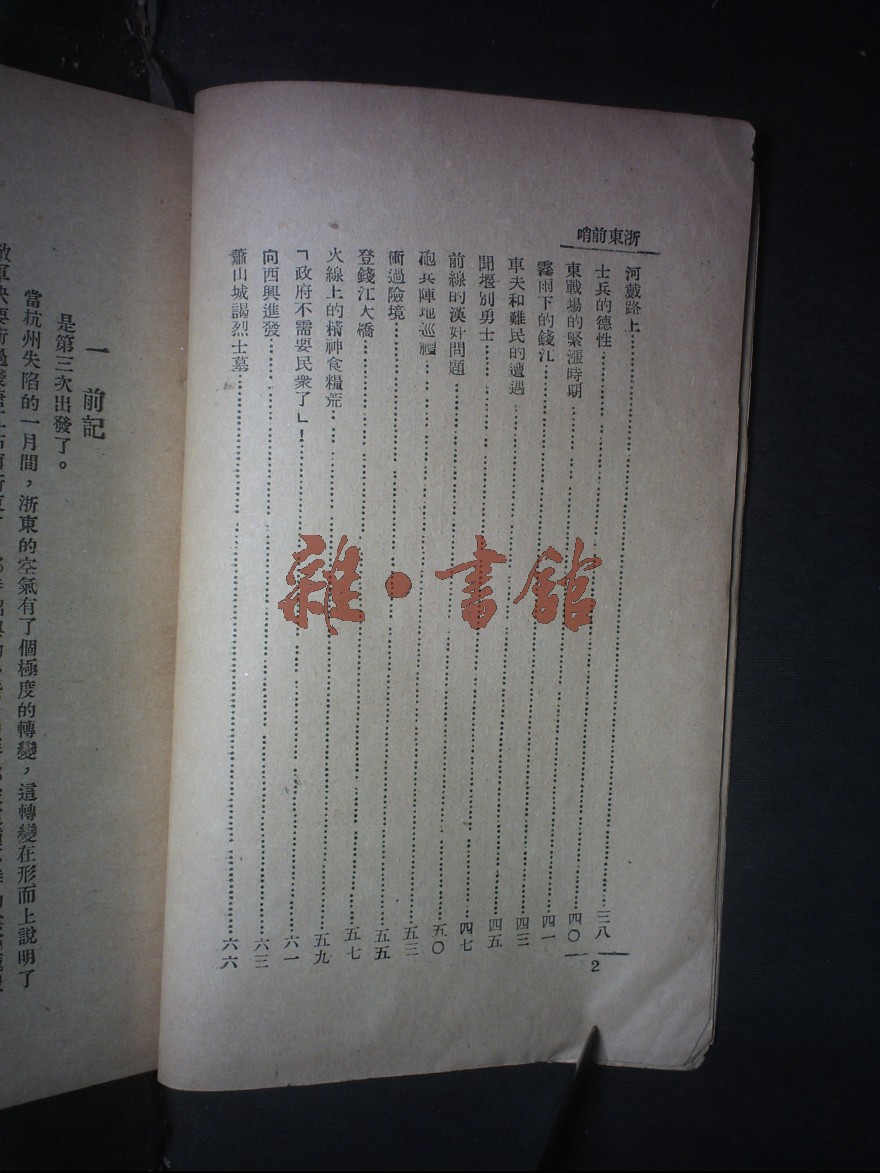 浙東前哨
河戴路上……三八
士兵的德性……四〇
東戰場的緊漲時期……四一
霧雨下的錢江……四三
車夫和難民的遭遇……四五
聞堰別勇士……四七
前線的漢奸問題……五〇
砲兵陣地巡禮……五三
衝過險境……五五
登錢江大橋……五七
火線上的精神食糧荒……五九
「政府不需要民衆了」！……六一
向西興進發……六三
蕭山城謁烈士墓……六六
2
一　前記
是第三次出發了。
當杭州失陷的一月間，浙東的空氣有了個極度的轉變，這轉變在形而上說明了
雜・書館